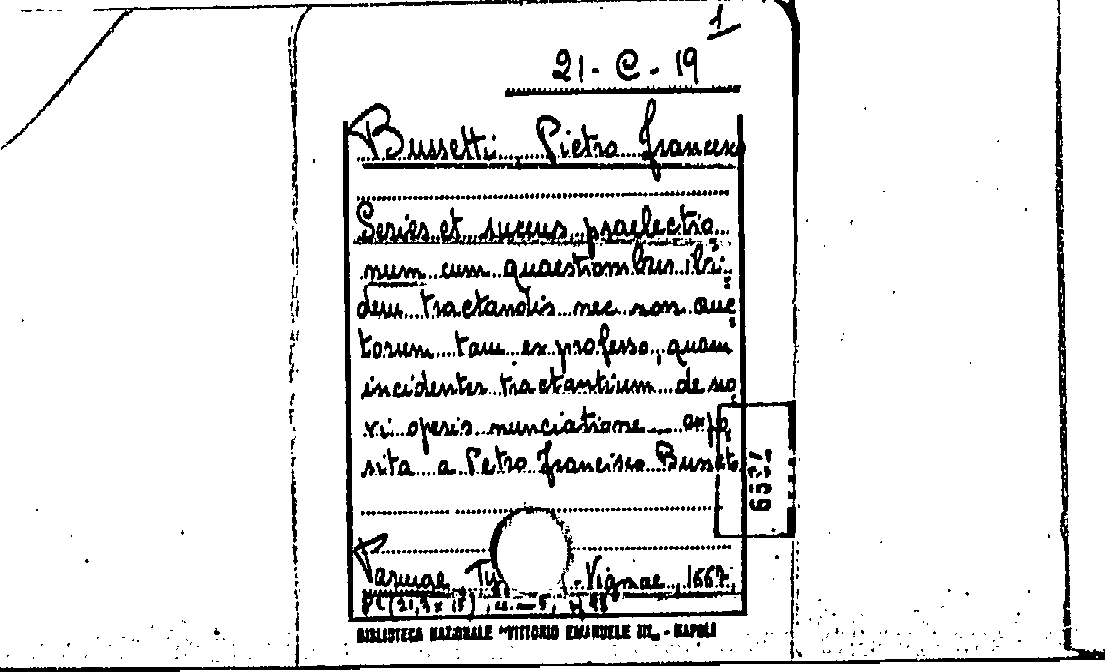 1
21-C-19
Bussetti, Pietro Francesco
Series et succus praelectio
num cum quaestionibus ibi=
dem tractandis nec non auc=
torum tam ex professo, quam
incidenter tractantium de no=
vi operis nunciatione expo=
sita a Petro Francisco Busset
Parmae, Ty - Vignae, 1667,
(21,3 x 15)
BIBLIOTECA NAZIONALE "VITTORIO EMANUELE III" - NAPOLI